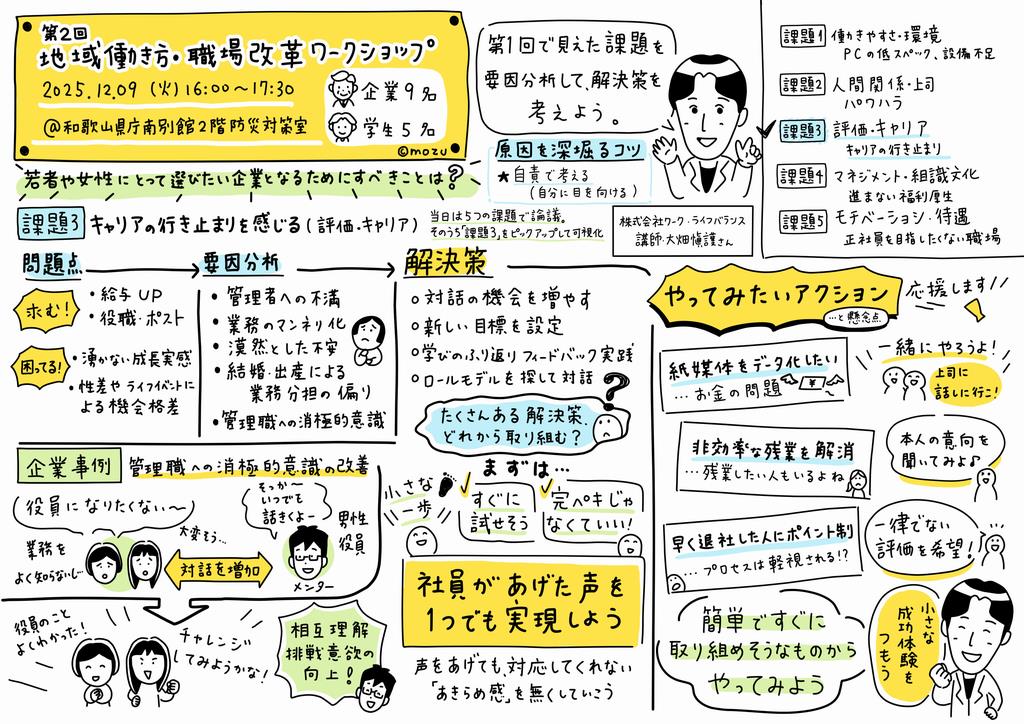 第2回
地域働き方・職場改革ワークショップ
2025.12.09 (火) 16:00〜17:30
@和歌山県庁南別館2階防災対策室
企業9名
学生5名
©mozu
第1回で見えた課題を
要因分析して、解決策を
考えよう。
原因を深堀るコツ
★自責で考える
(自分に目を向ける)
株式会社ワーク・ライフバランス
講師・大畑慎護さん
課題1 働きやすさ・環境
PCの低スペック、設備不足
課題2 人間関係・上司
パワハラ
課題3 評価・キャリア
キャリアの行き止まり
課題4 マネジメント・組織文化
進まない福利厚生
課題5 モチベーション・待遇
正社員を目指したくない職場
若者や女性にとって選びたい企業となるためにすべきことは?
課題3 キャリアの行き止まりを感じる(評価・キャリア)
当日は5つの課題で論議。
そのうち「課題3」をピックアップして可視化
問題点
求む!
・給与UP
・役職・ポスト
困ってる!
・湧かない成長実感
・性差やライフイベントに
よる機会格差
要因分析
・管理者への不満
・業務のマンネリ化
・漠然とした不安
・結婚・出産による
業務分担の偏り
・管理職への消極的意識
解決策
○対話の機会を増やす
○新しい目標を設定
○学びのふり返りフィードバック実践
○ロールモデルを探して対話
たくさんある解決策、
どれから取り組む?
?
まずは…
小さな
一歩
すぐに
試せそう
完ペキじゃ
なくていい!
社員があげた声を
1つでも実現しよう
声をあげても、対応してくれない
「あきらめ感」を無くしていこう
企業事例 管理職への消極的意識の改善
役員になりたくない〜
業務を
よく知らないし
大変そう…
対話を増加
そっか〜
いつでも
話きくよー
男性
役員
メンター
役員のこと
よくわかった!
チャレンジ
してみようかな!
相互理解
挑戦意欲の
向上!
やってみたいアクション
…と懸念点
応援します//
紙媒体をデータ化したい
…お金の問題
¥
一緒にやろうよ!
上司に
話しに行こ!
非効率な残業を解消
…残業したい人もいるよね
本人の意向を
聞いてみよ♪
早く退社した人にポイント制
…プロセスは軽視される!?
一律でない
評価を希望!
簡単ですぐに
取り組めそうなものから
やってみよう
小さな
成功体験を
つもう